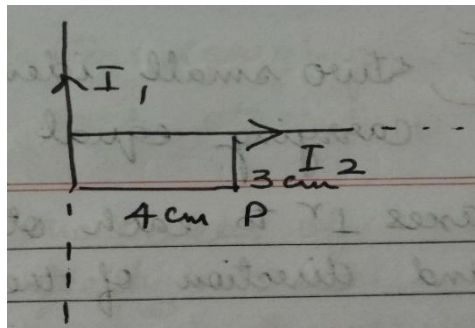 I1
I2
3cm
4cm P